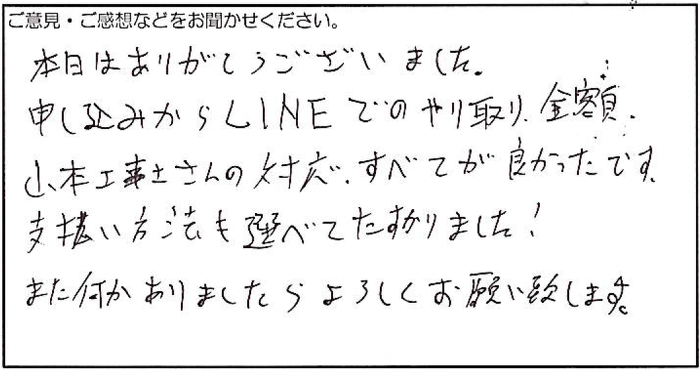 ご意見・ご感想などをお聞かせください。
本日はありがとうございました。
申し込みからLINEでのやり取り、金額、
山本工事士さんの対応、すべてが良かったです。
支払い方法も選べてたすかりました!
また何かありましたらよろしくお願い致します。